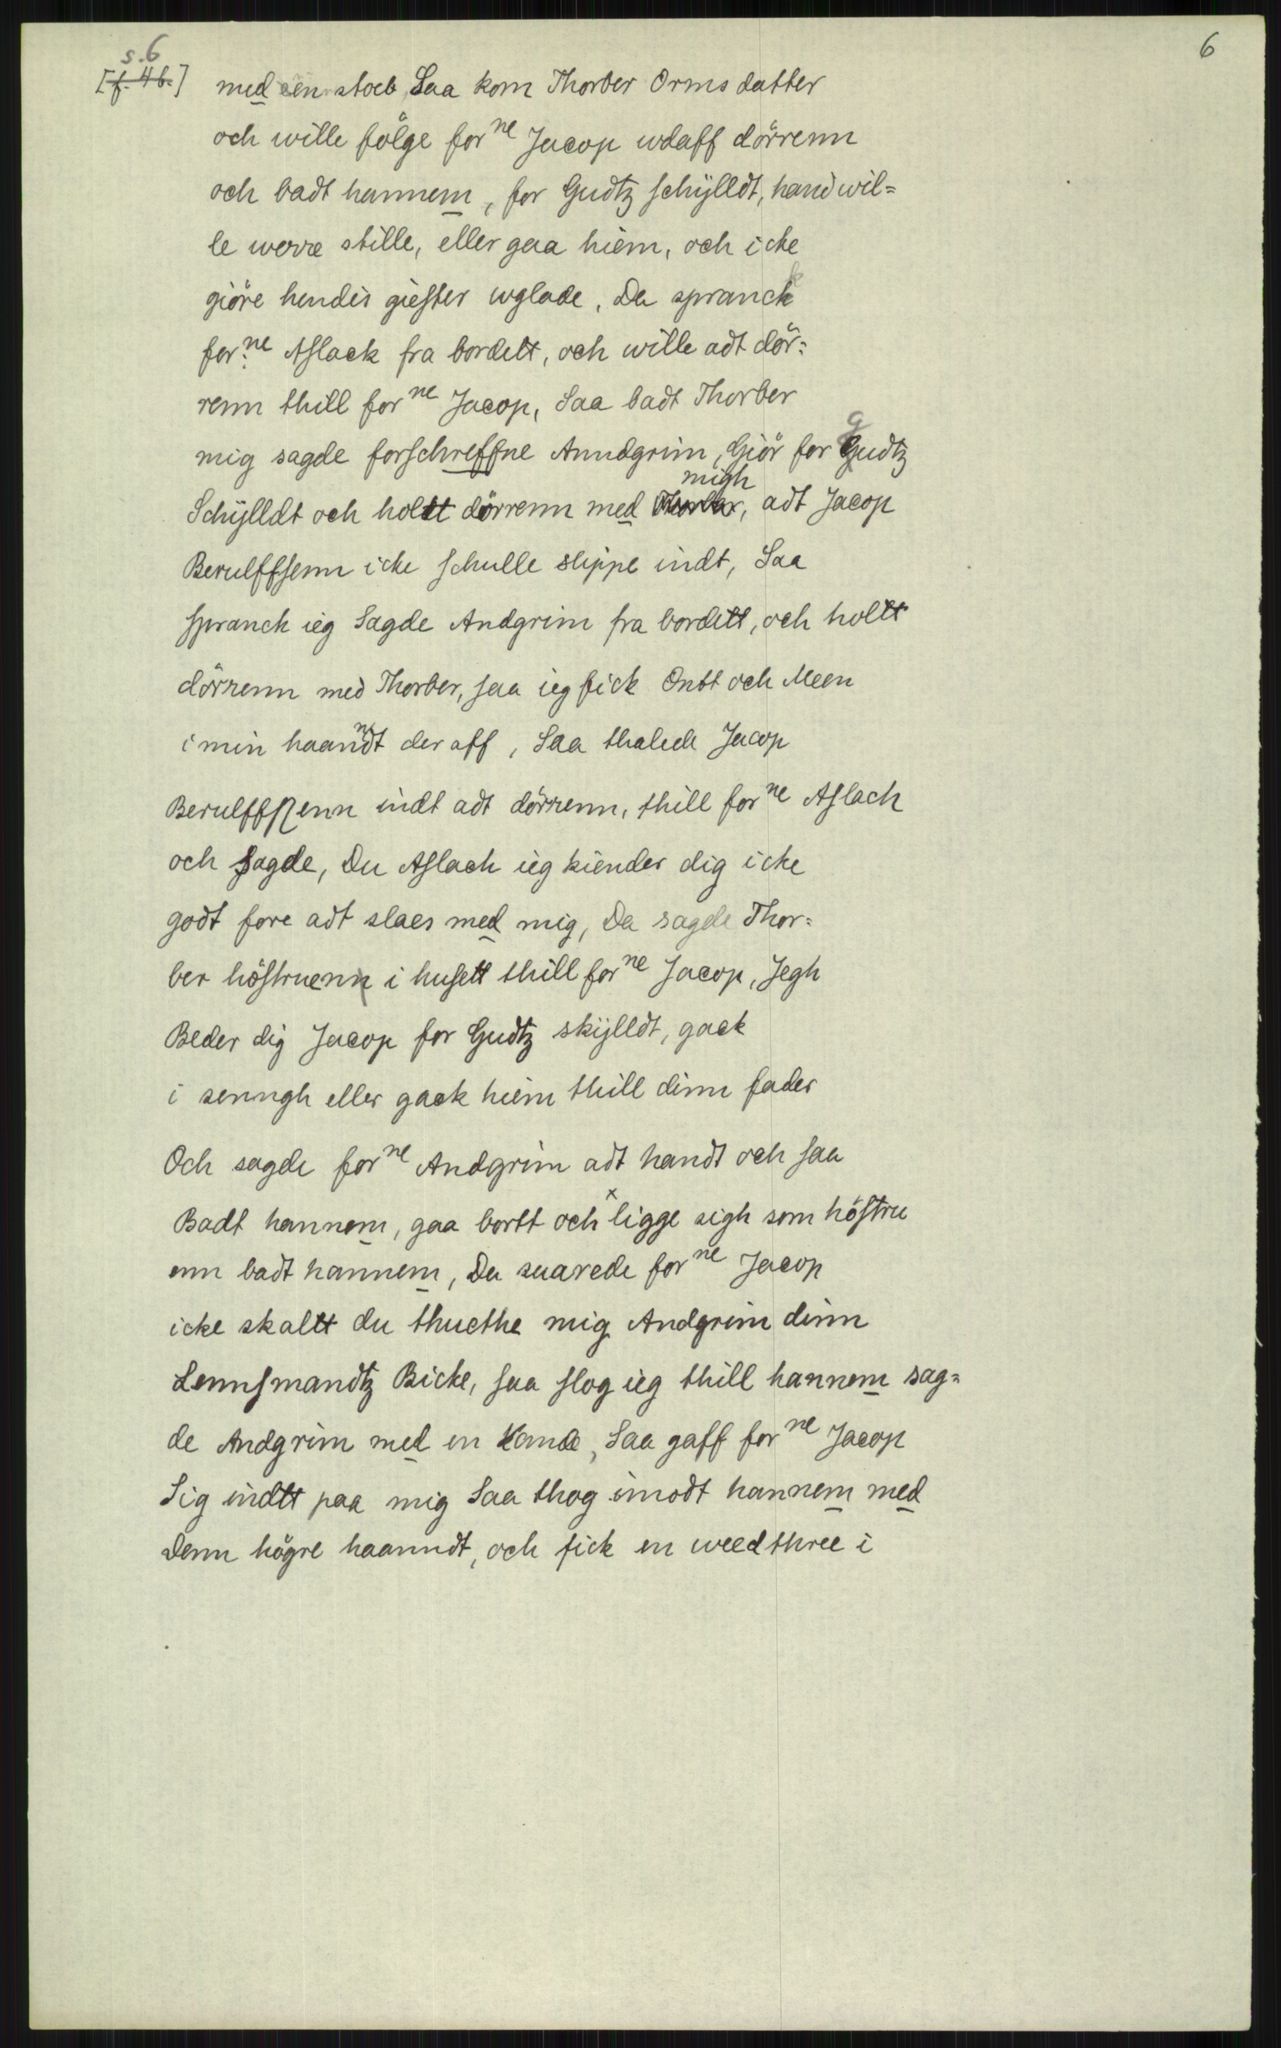 6
s. 6
[f. 4b.] med een stoeb, Saa kom Thorber Orms datter
och wille fölge for ne Jacop wdaff dörrenn
och badt hannem, for Gudtz schÿlldt, hand wil=
le werre stille, eller gaa hiem, och icke
giöre hendis giester wglade. Da spranck
for: ne Aslack fra bordett, och wille adt dör=
renn thill for ne Jacop, Saa badt Thorber
mig sagde forschreffne Anndgrim, Giör for Gudtz
migh
Schÿlldt och holtt dörrenn med Thorber, adt Jacop
Berulffsenn icke schulle slippe indt, Saa
spranck ieg Sagde Andgrim fra bordett, och holtt
dörrenn med Thorber, saa ieg fick Ontt och Meen
i min haanndt der aff, Saa thalede Jacop
Berulffssenn indt adt dörrenn, thill for ne Aslach
och sagde, Du Aslach ieg kiender dig icke
godt fore adt slaes med mig, Da sagde Thor=
ber höstruenn i husett thill for ne Jacop, Jegh
Beder dig Jacop for Gudtz skÿlldt, gack
i senngh eller gack hiem thill dinn fader
Och sagde for ne Andgrim adt handt och saa
Badt hannem, gaa bortt och x ligge sigh som höstru
enn badt hannem, Da suarede for ne Jacop
icke skaltt du thucthe mig Andgrim dinn
Lennsmandtz Bicke, saa slog ieg thill hannem sag=
de Andgrim med en Kande, Saa gaff for ne Jacop
Sig indtt paa mig Saa thog imodt hannem med
Denn högre haanndt, och fick en weedthree i